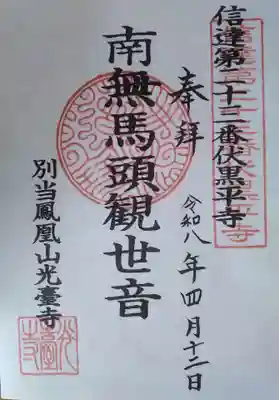 信達第二十三番伏黒平寺
奉拝
令和八年四月十二日
南無馬頭観世音
別当鳳凰山光臺寺